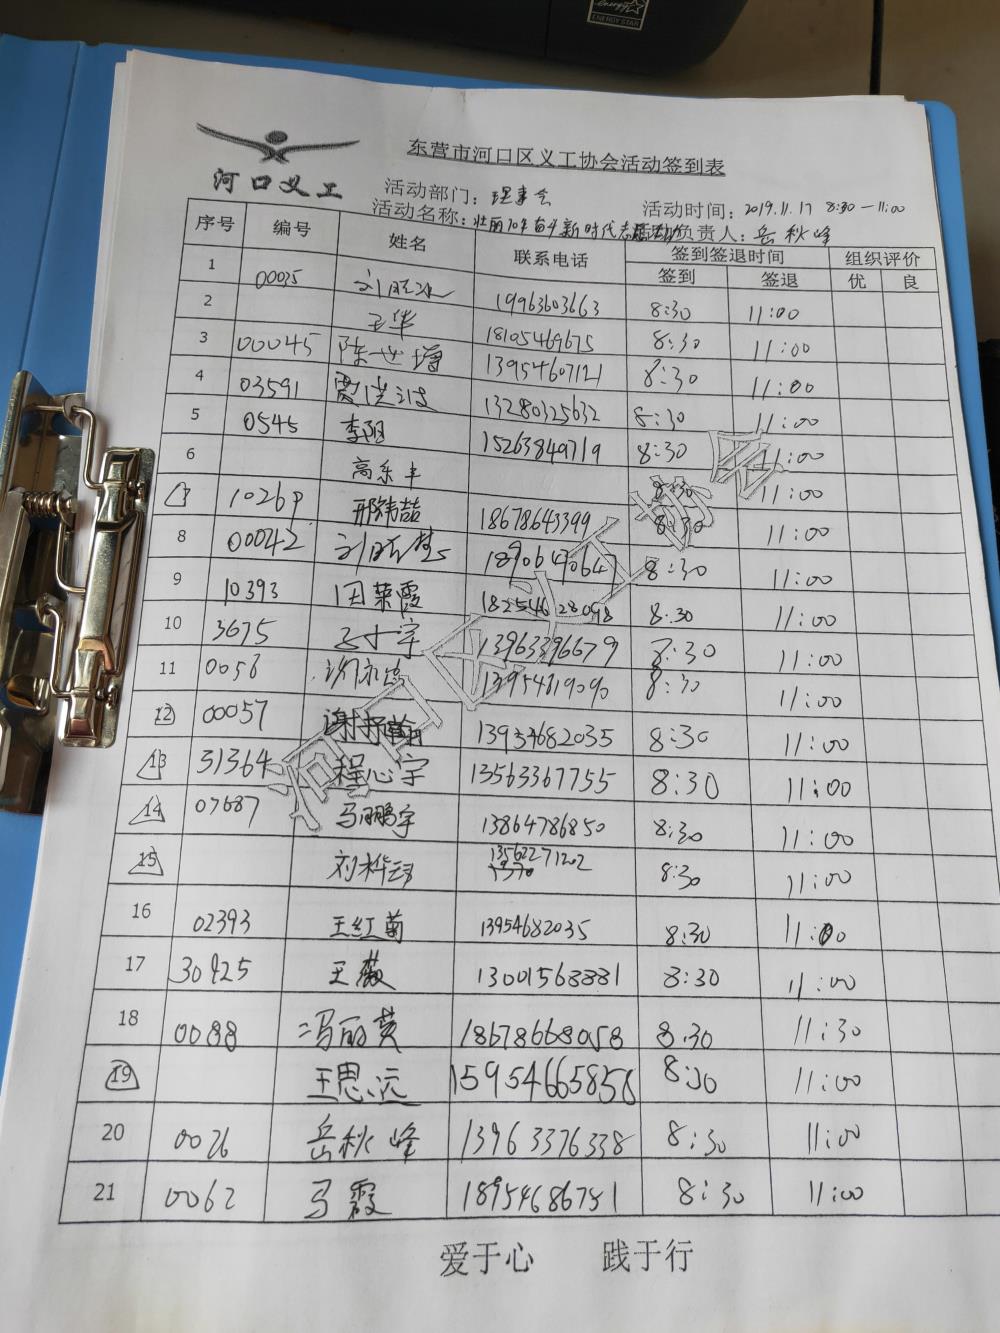 ENERGY STAR
东营市河口区义工协会活动签到表
河口义工
活动部门: 理事会
活动时间: 2019.11.17 8:30-11:00
活动名称: 壮丽70年奋斗新时代 负责人: 岳秋峰
序号 编号 姓名 联系电话 签到签退时间 组织评价
签到 签退 优 良
1 00035 19963603663 8:30 11:00
2 王华 18105469675 8:30 11:00
3 00045 陈世增 13954607121 8:30 11:00
4 03591 13280325632 8:30 11:00
5 0545 李阳 15263849719 8:30 11:00
6 高东丰 8:30 11:00
7 10269 邢纬喆 18678643399 8:30 11:00
8 00042 18906490647 8:30 11:00
9 10393 田荣霞 18254628098 8:30 11:00
10 3675 13963396679 8:30 11:00
11 0058 13954819090 8:30 11:00
12 00057 谢抒翰 13954682035 8:30 11:00
13 31364 程心宇 13563367755 8:30 11:00
14 07687 马鹏宇 13864786850 8:30 11:00
15 刘桦 13562271202 8:30 11:00
16 02393 王红菊 13954682035 8:30 11:00
17 30925 王薇 13001568881 8:30 11:00
18 0088 冯丽英 18678668058 8:30 11:30
19 王思远 15954665856 8:30 11:00
20 0026 岳秋峰 13963376338 8:30 11:00
21 0062 马霞 18954686751 8:30 11:00
爱于心 践于行